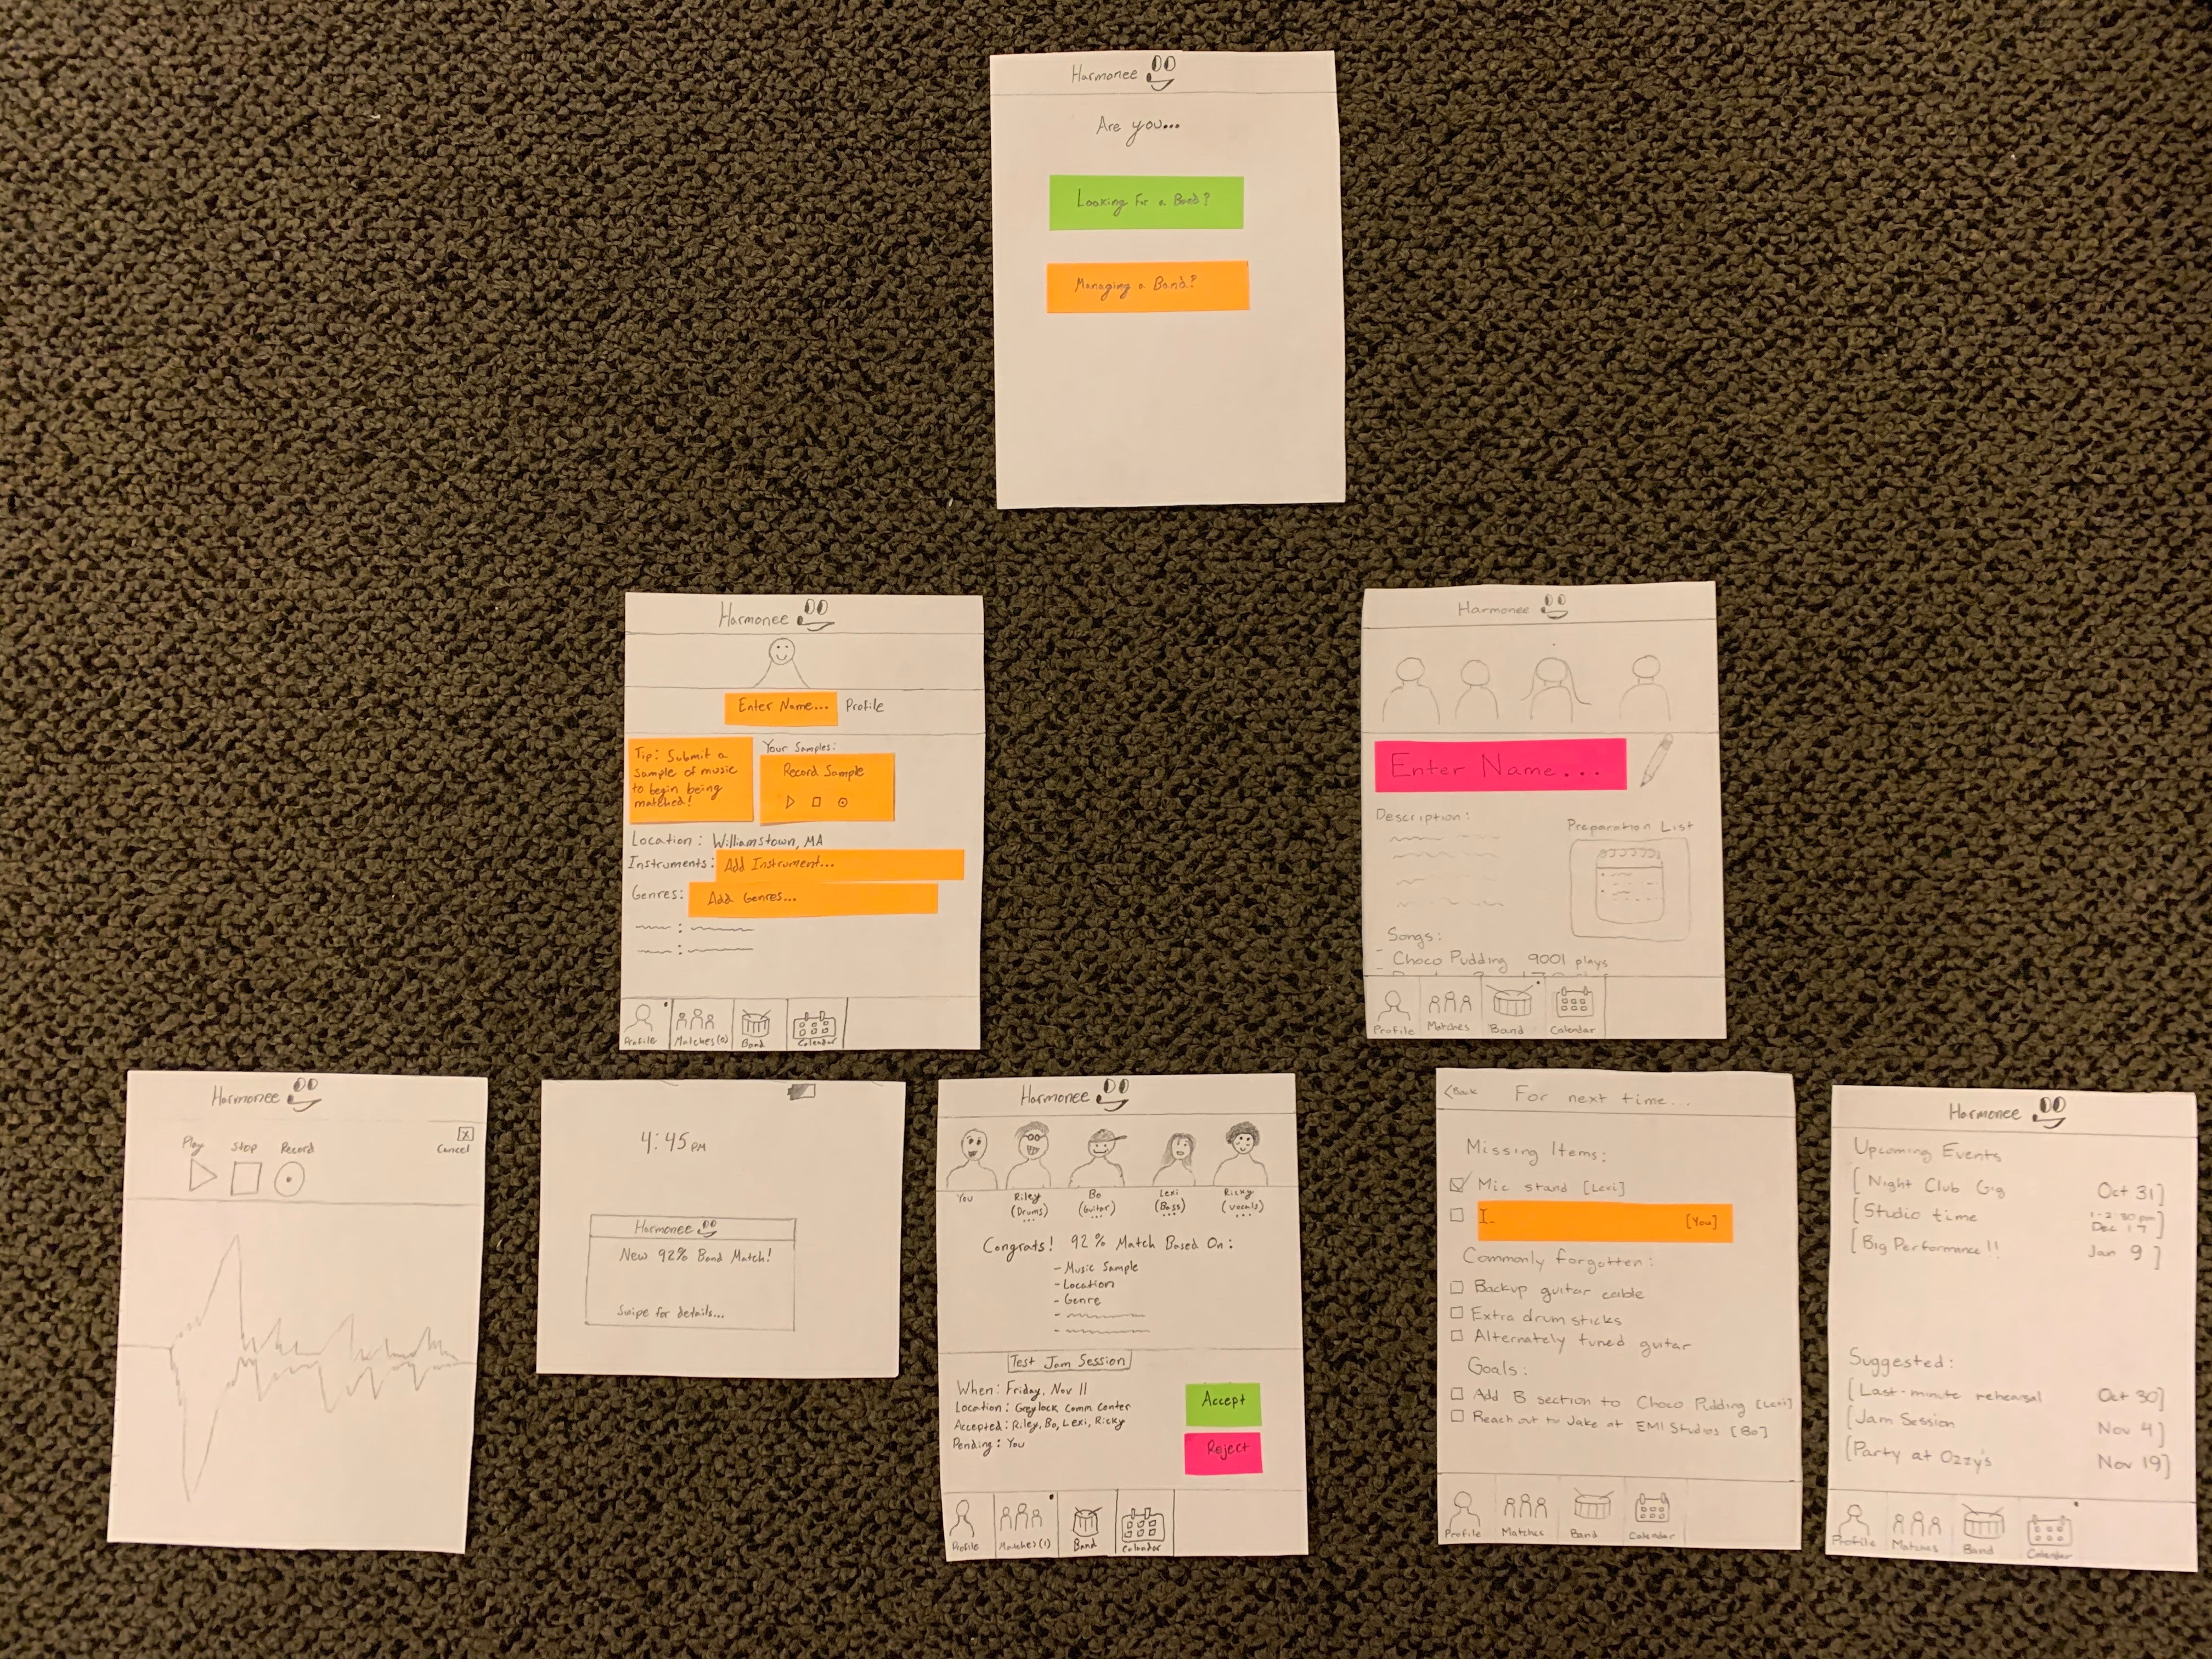 Harmonee
Are you...
Looking For a Band?
Managing a Band?
Harmonee
Enter Name... Profile
Tip: Submit a
sample of music
to begin being
matched!
Your Samples:
Record Sample
Location: Williamstown, MA
Instruments: Add Instrument...
Genres: Add Genres...
Profile Matches(0) Band Calendar
Harmonee
Enter Name...
Description:
Preparation List
Songs:
- Choco Pudding 9001 plays
Profile Matches Band Calendar
Harmonee
Play Stop Record
X
Cancel
4:45 PM
Harmonee
New 92% Band Match!
Swipe for details...
Harmonee
You Riley Bo Lexi Ricky
(Drums) (Guitar) (Bass) (Vocals)
Congrats! 92% Match Based On:
- Music Sample
- Location
- Genre
Test Jam Session
When: Friday, Nov 11
Location: Greylock Comm Center
Accepted: Riley, Bo, Lexi, Ricky
Pending: You
Accept
Reject
Profile Matches(1) Band Calendar
<Back For next time...
Missing Items:
Mic stand [Lexi]
I_ [You]
Commonly forgotten:
Backup guitar cable
Extra drum sticks
Alternately tuned guitar
Goals:
Add B section to Choco Pudding [Lexi]
Reach out to Jake at EMI Studios [Bo]
Profile Matches Band Calendar
Harmonee
Upcoming Events
[Night Club Gig Oct 31]
[Studio time 1-2:30pm Dec 17]
[Big Performance!! Jan 9]
Suggested:
[Last-minute rehearsal Oct 30]
[Jam Session Nov 4]
[Party at Ozzy's Nov 19]
Profile Matches Band Calendar